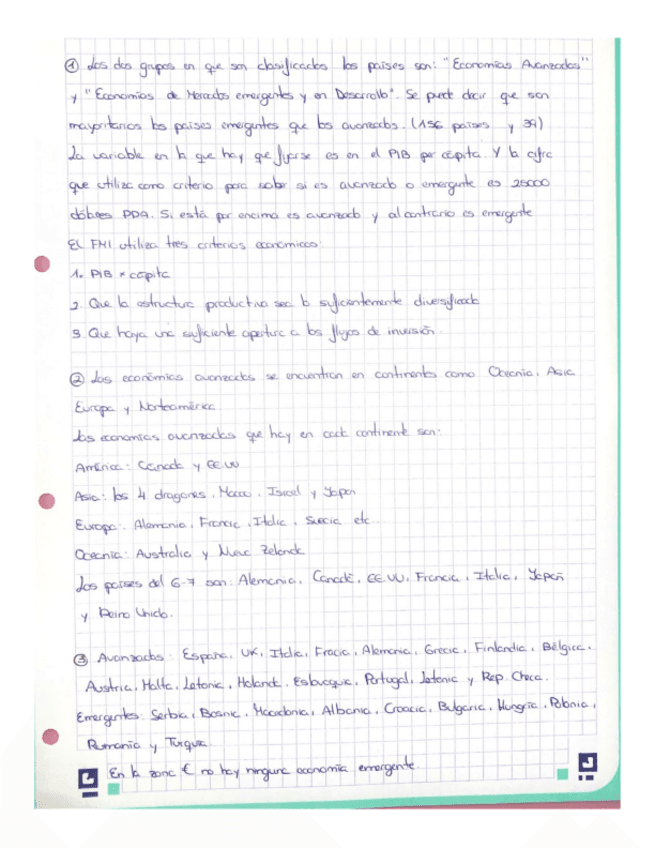 ① Los dos grupos en que son clasificados los países son: "Economías Avanzadas"
y "Economías de Mercados emergentes y en Desarrollo". Se puede decir que son
mayoritarios los países emergentes que los avanzados. (156 países y 39)
La variable en la que hay que fijarse es en el PIB per cápita. Y la cifra
que utiliza como criterio para saber si es avanzado o emergente es 25000
dólares PDA. Si está por encima es avanzado y al contrario es emergente
El FMI utiliza tres criterios económicos:
1. PIB x cápita
2. Que la estructura productiva sea lo suficientemente diversificada
3. Que haya una suficiente apertura a los flujos de inversión.
② Las económias avanzadas se encuentran en continentes como Oceania, Asia
Europa y Norteamérica
Las economías avanzadas que hay en cada continente son:
América: Canada y EEUU
Asia: los 4 dragones, Macao, Israel y Japon
Europa: Alemania, Francia, Italia, Suecia etc
Oceania: Australia y Nueva Zelanda
Los países del G-7 son: Alemania, Canadá, EE.UU, Francia, Italia, Japón
y Reino Unido.
③ Avanzados: España, UK, Italia, Fracia, Alemania, Grecia, Finlandia, Bélgica,
Austria, Malta, Letonia, Holanda, Eslovaquia, Portugal, Letonia y Rep. Checa.
Emergentes: Serbia, Bosnia, Macedonia, Albania, Croacia, Bulgaria, Hungría, Polonia,
Rumania y Turquía.
En la zona € no hay ninguna economía emergente.